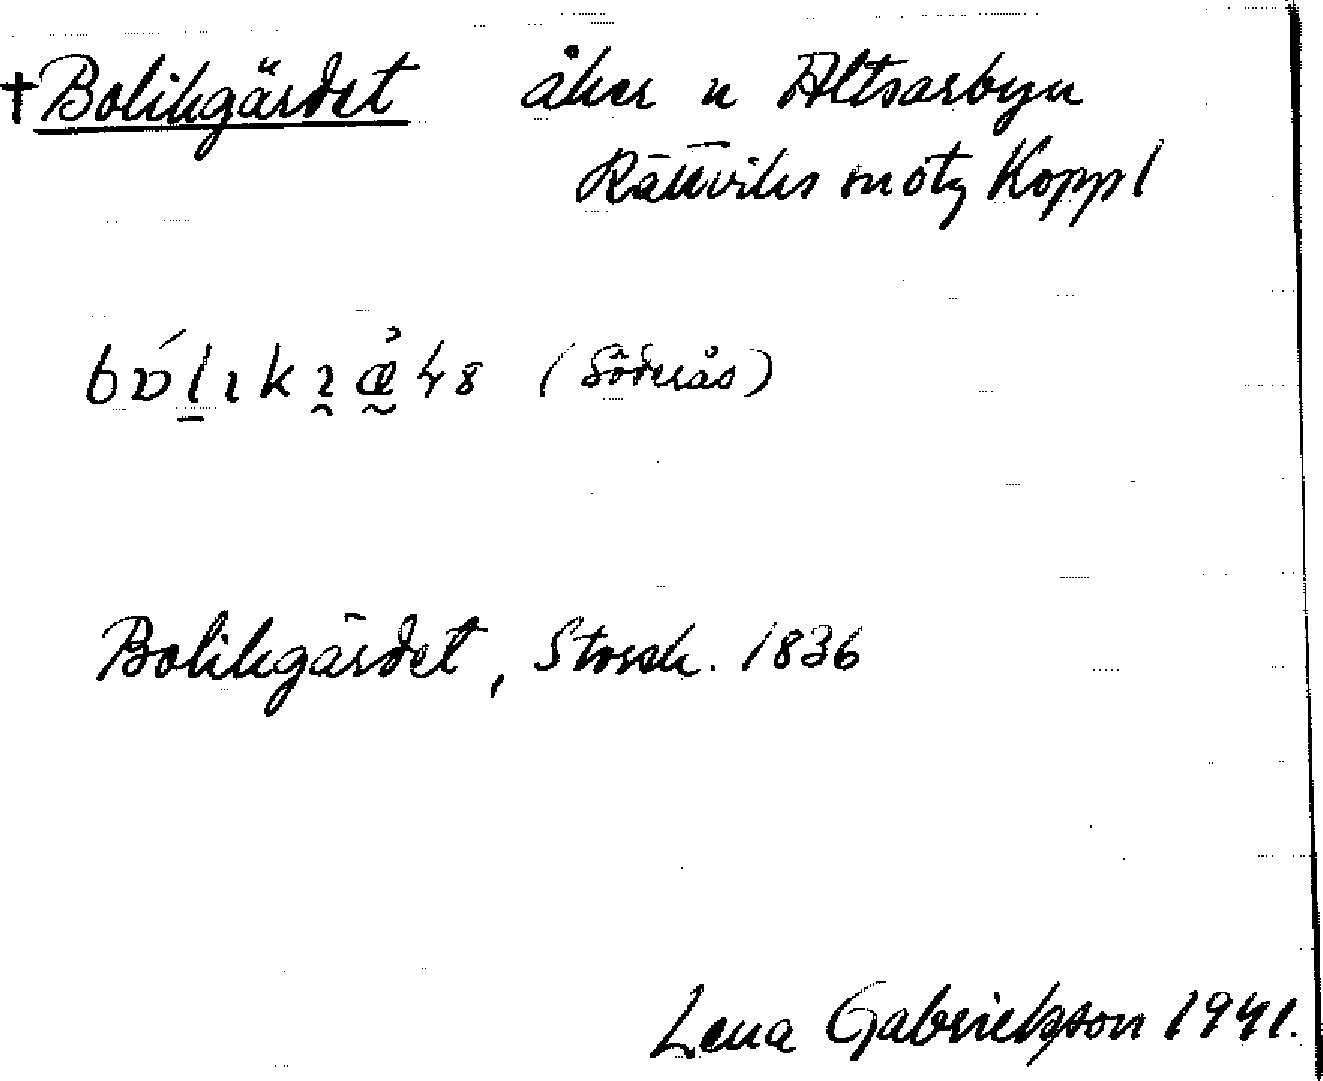 † Bolikgärdet åker n Altsarbyn
Rättviks sn o tg Koppl
(Söderås)
Bolikgärdet, Storsk. 1836
Lena Gabrielsson 1941.